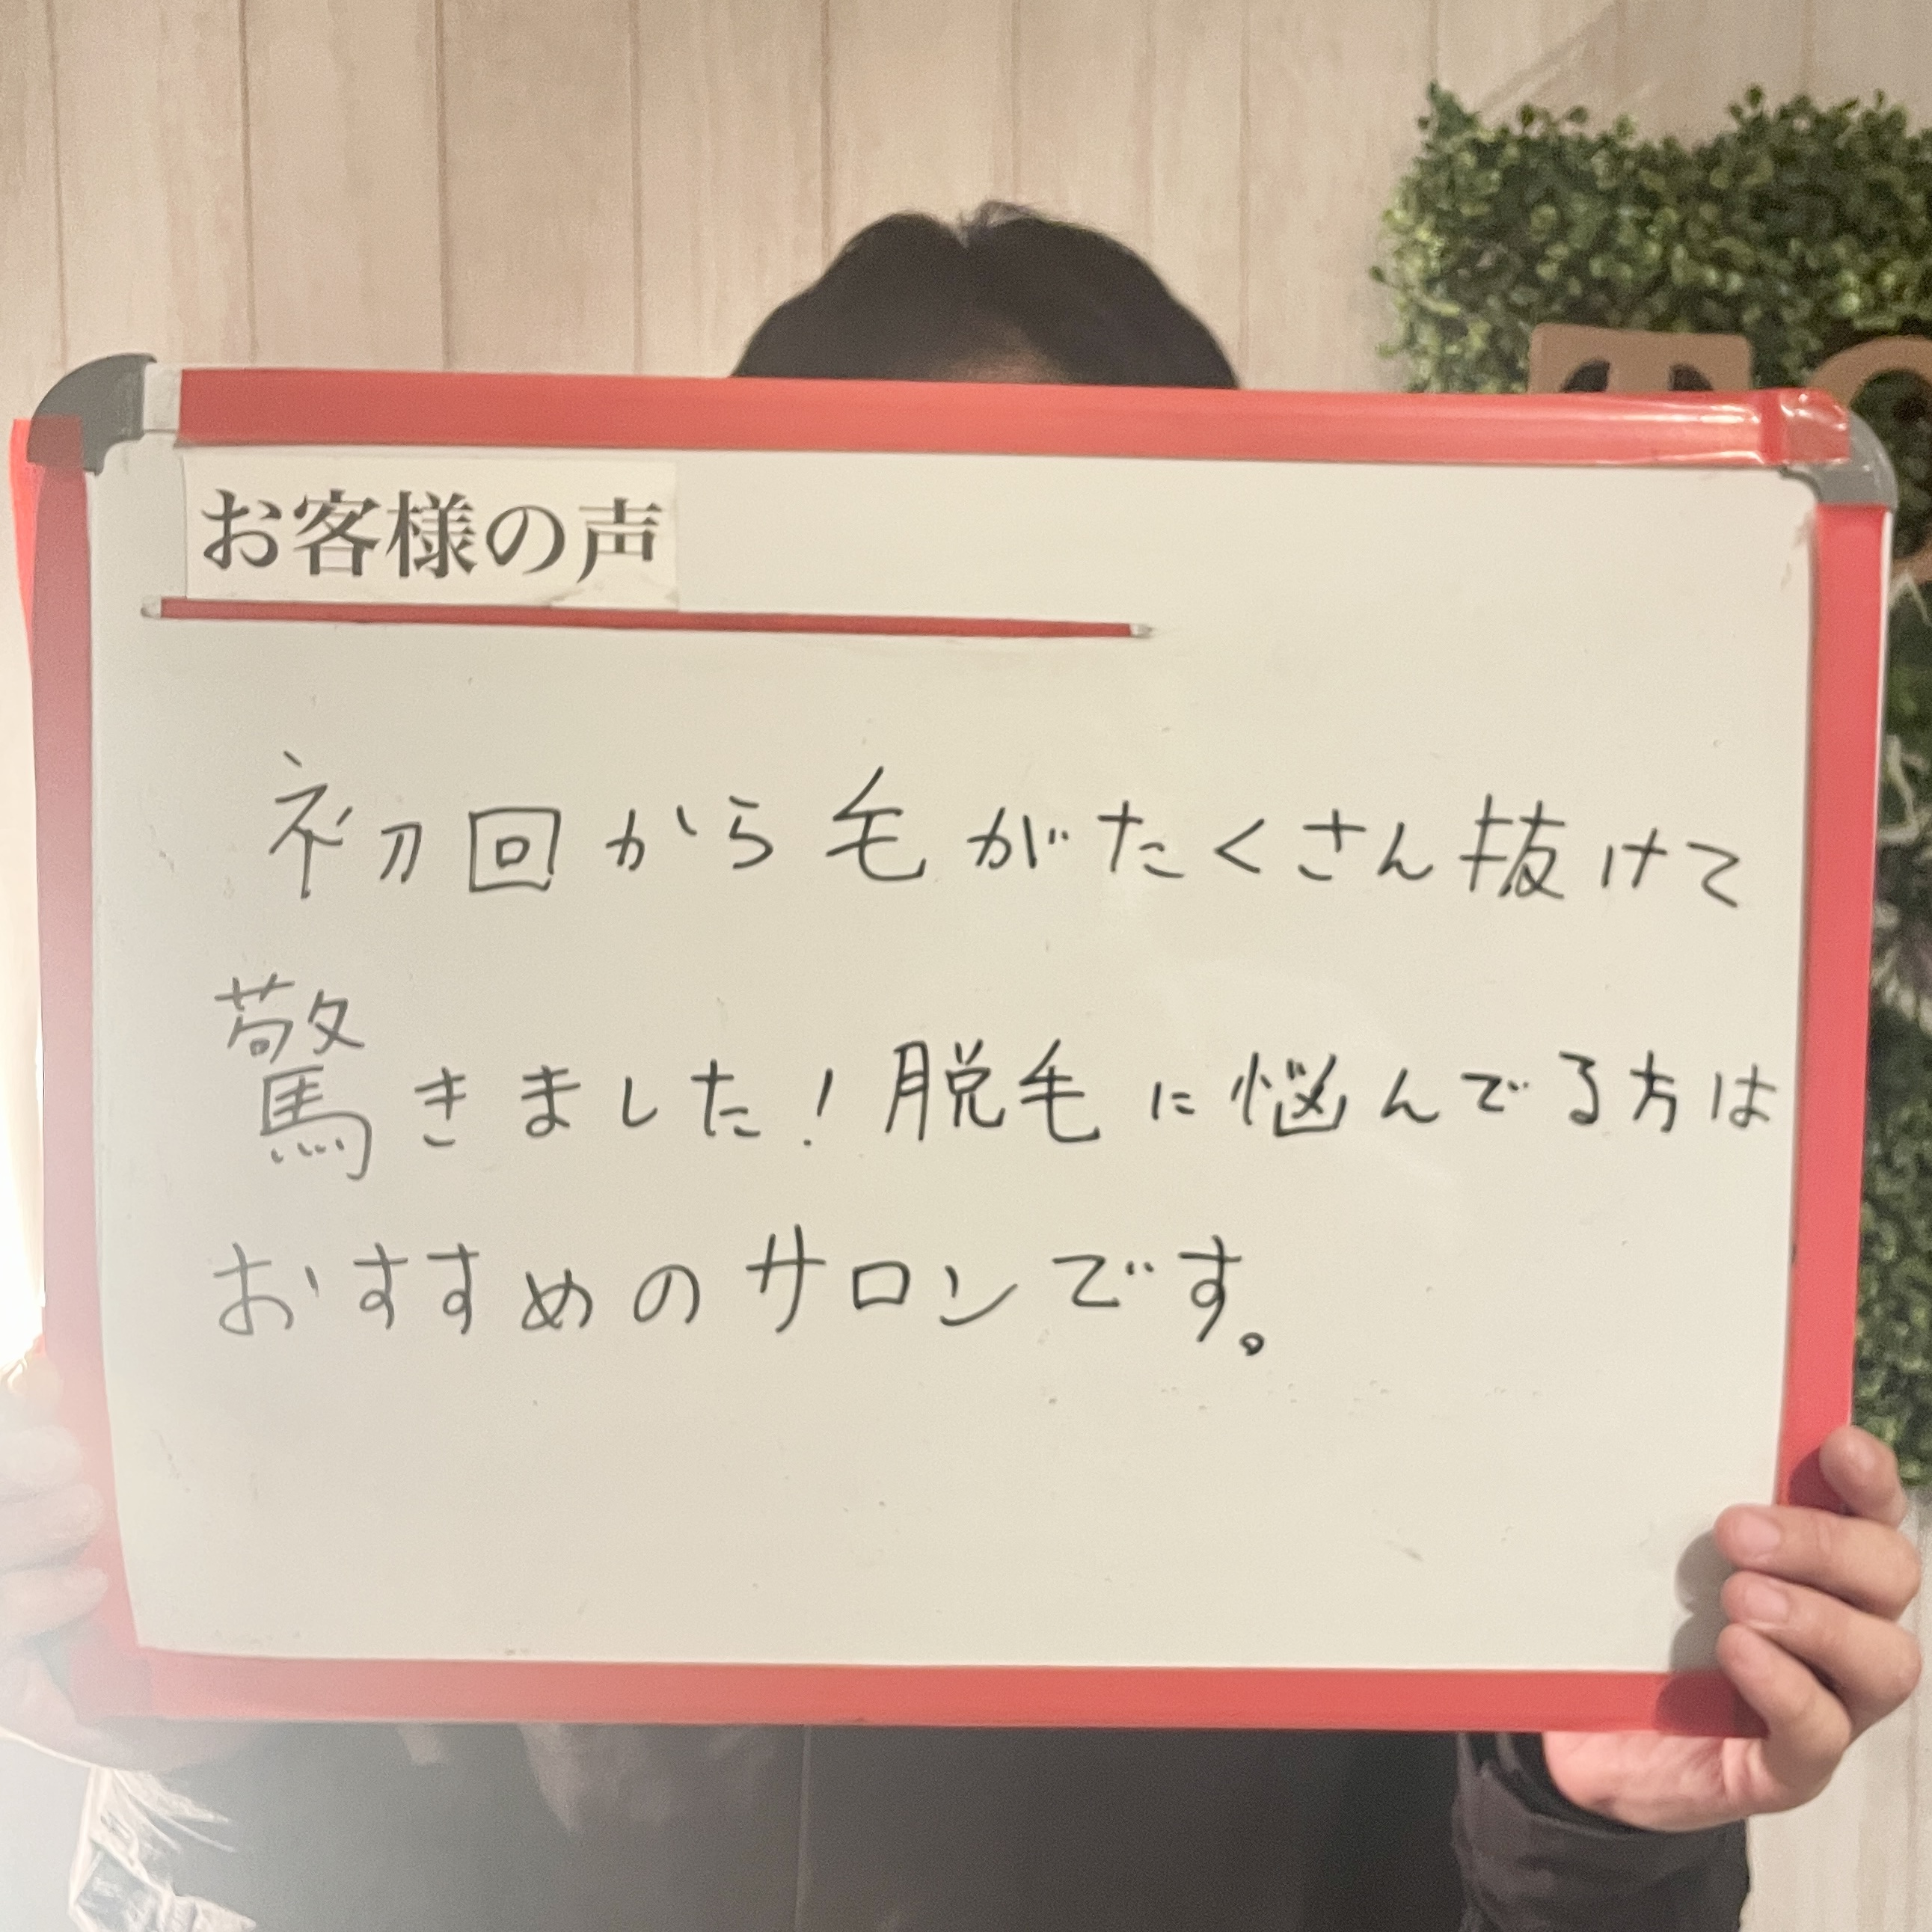 お客様の声
初回から毛がたくさん抜けて
驚きました!脱毛に悩んでる方は
おすすめのサロンです。